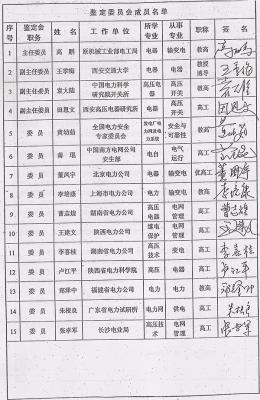 鉴定委员会成员名单
序号 鉴定会职务 姓名 工作单位 所学专业 从事专业 职称 签名
1 主任委员 高鹏 原机械工业部电工局 电器 输变电 教高
2 副主任委员 王季梅 西安交通大学 电器 电器 教授博导
3 副主任委员 袁大陆 中国电力科学研究院开关所 高压电器 高压开关 教高
4 副主任委员 田恩文 西安高压电器研究所 电器 高压开关 高工
5 委员 黄幼茹 全国电力安全专家委员会 发电厂电力网及电力系统 安全与可靠性 教高
6 委员 蒋琨 中国南方电网公司安生部 电自 电气运行 高工
7 委员 董凤宇 北京电力公司 电器 输变电 教高工
8 委员 李培盛 上海市电力公司 电力 输变电 教高
9 委员 曹志煌 湖南省电力公司 高压电器 电网管理 高工
10 委员 王建文 陕西电力公司 继电保护 电网管理 高工
11 委员 李喜桂 湖南省电力公司 高压技术 变电 高工
12 委员 卢江平 陕西省电力科学院 高压电器 高压 高工
13 委员 郑泽中 福建省电力公司 电力 电力 高工
14 委员 朱根良 广东省电力试研所 电力网 供电 高工
15 委员 张卓军 长沙电业局 高压技术 电网管理 高工